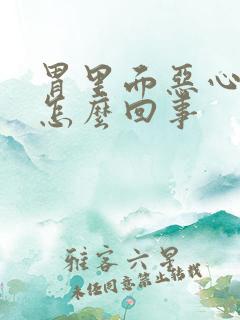 胃里而惡心
怎麼回事
雅客六星
未经同意禁止转载